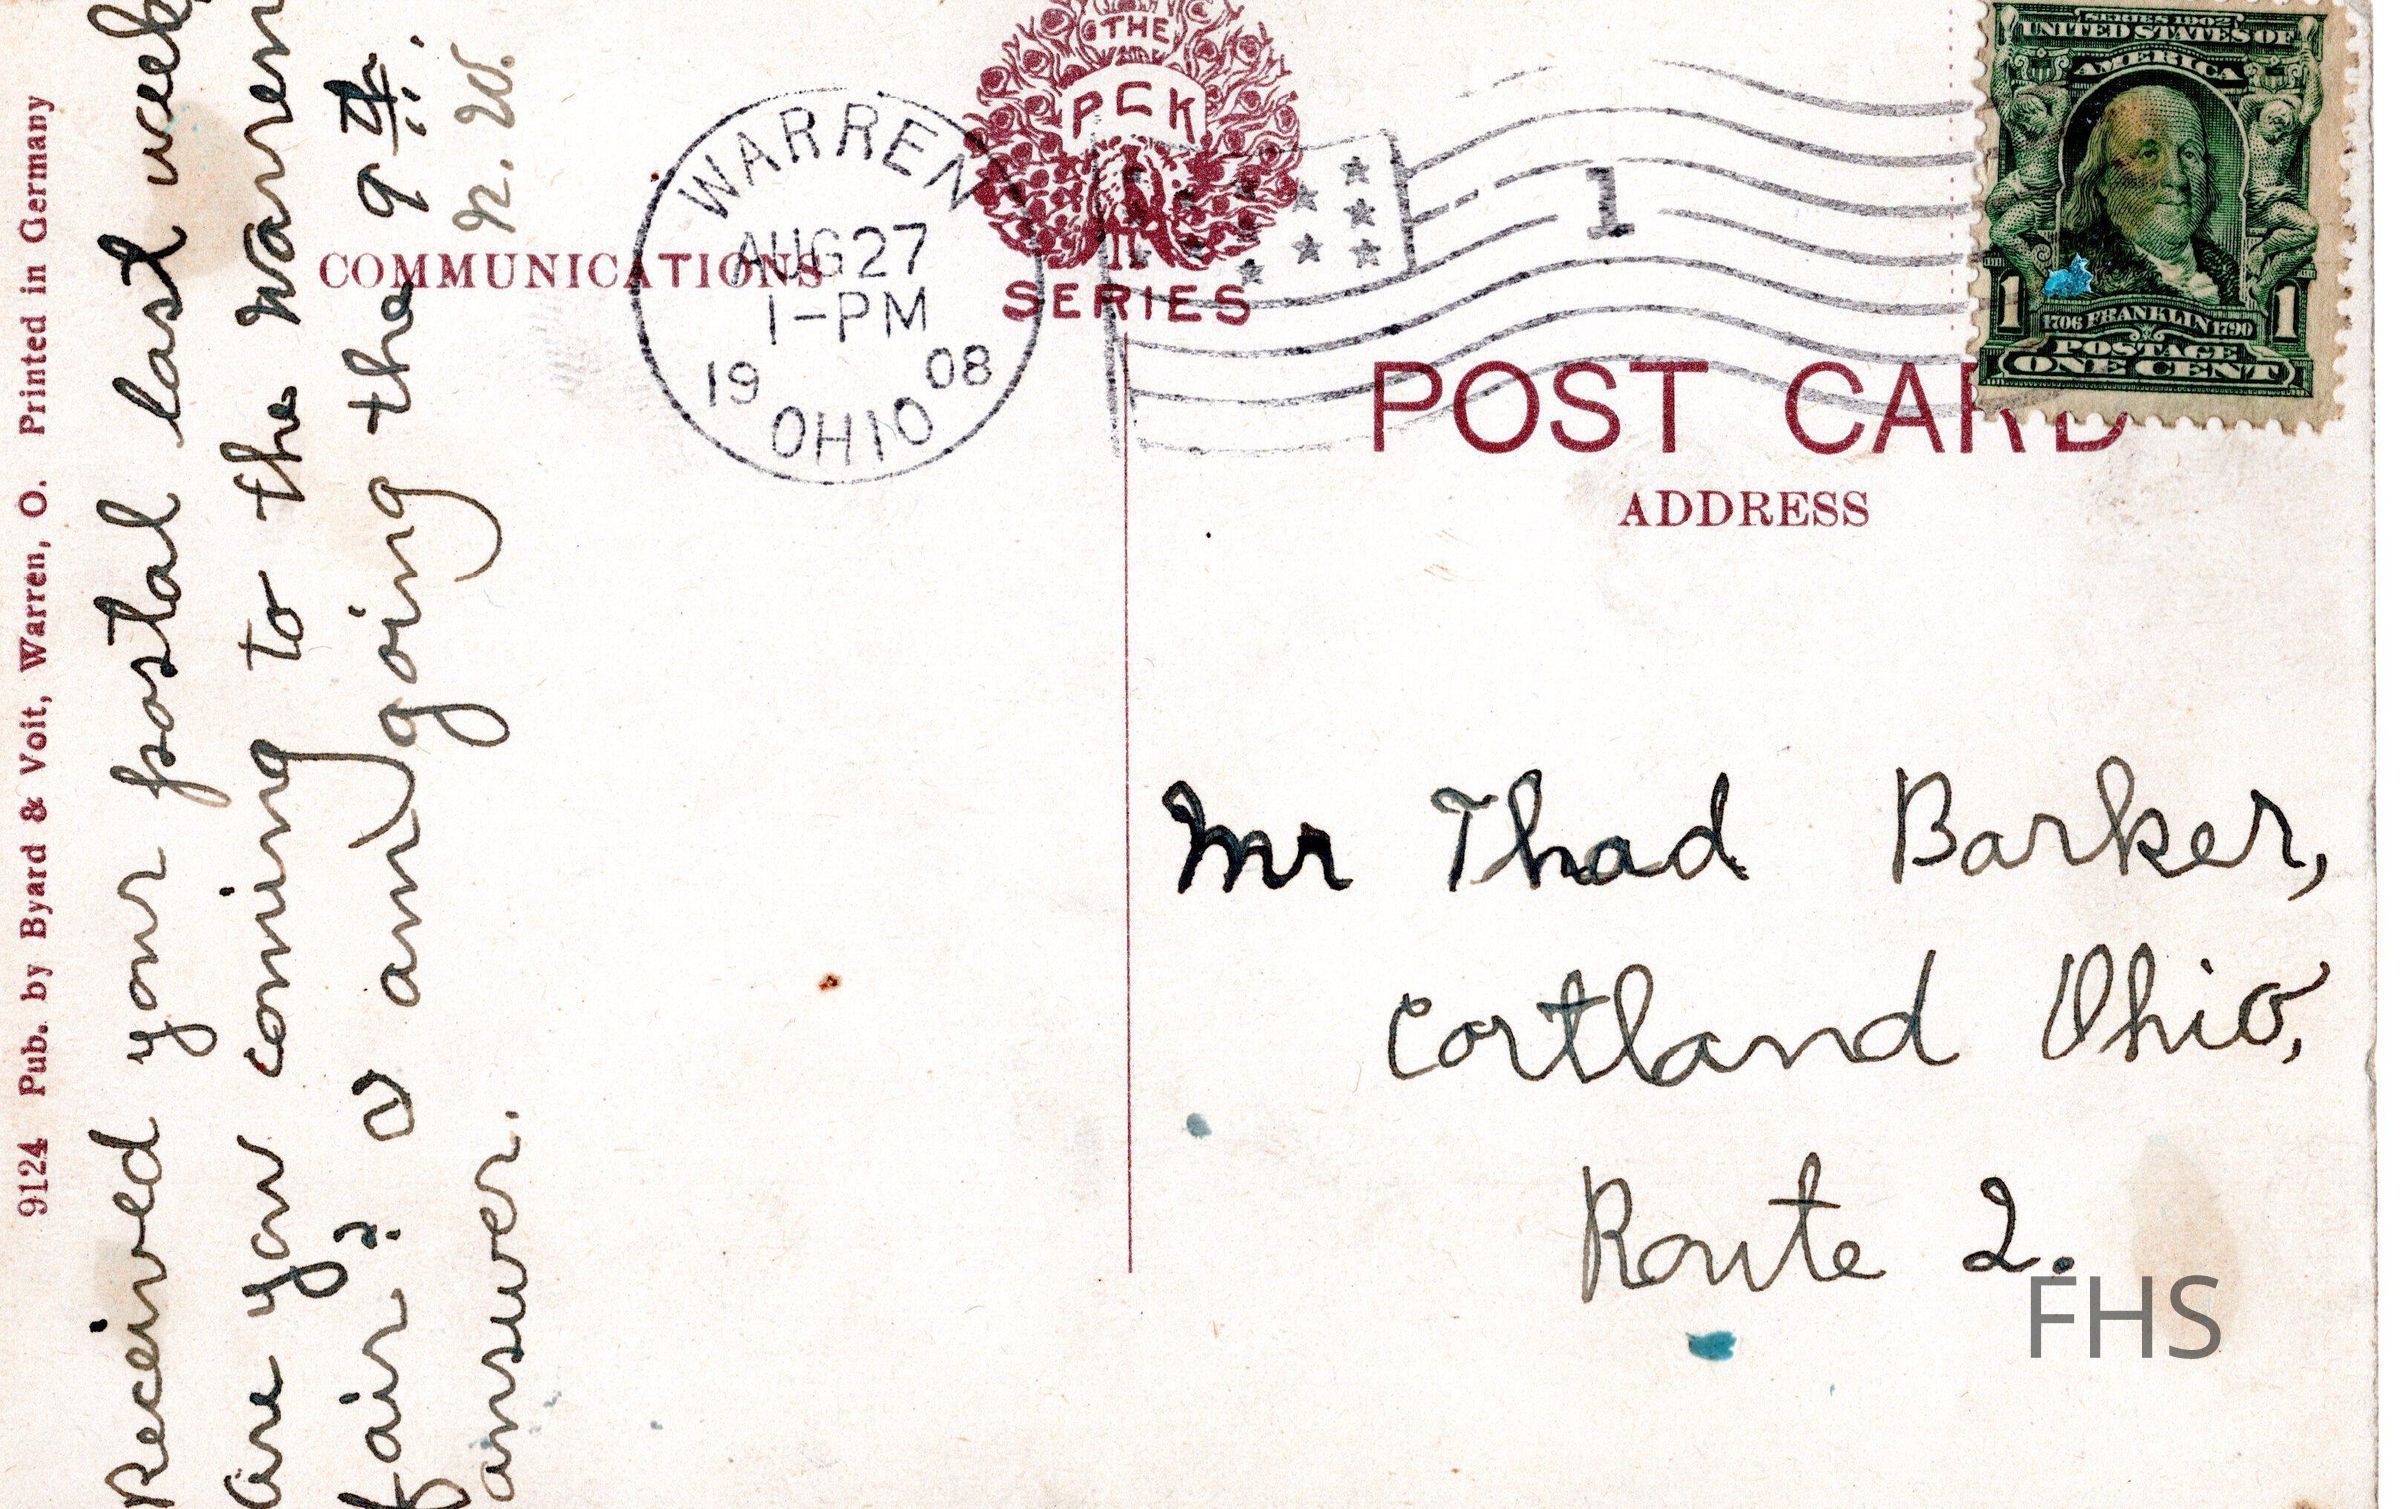 9124 Pub. by Byard & Voit, Warren, O. Printed in Germany
Received your postal last week,
are you coming to the Warren
fair? I am going the 9th.
answer. N. W.
COMMUNICATIONS
THE
PCK
SERIES
WARREN
AUG 27
1-PM
1908
OHIO
1
SERIES 1902
UNITED STATES OF
AMERICA
1 1
1706 FRANKLIN 1790
POSTAGE
ONE CENT
POST CARD
ADDRESS
Mr Thad Barker,
Cortland Ohio,
Route 2.
FHS